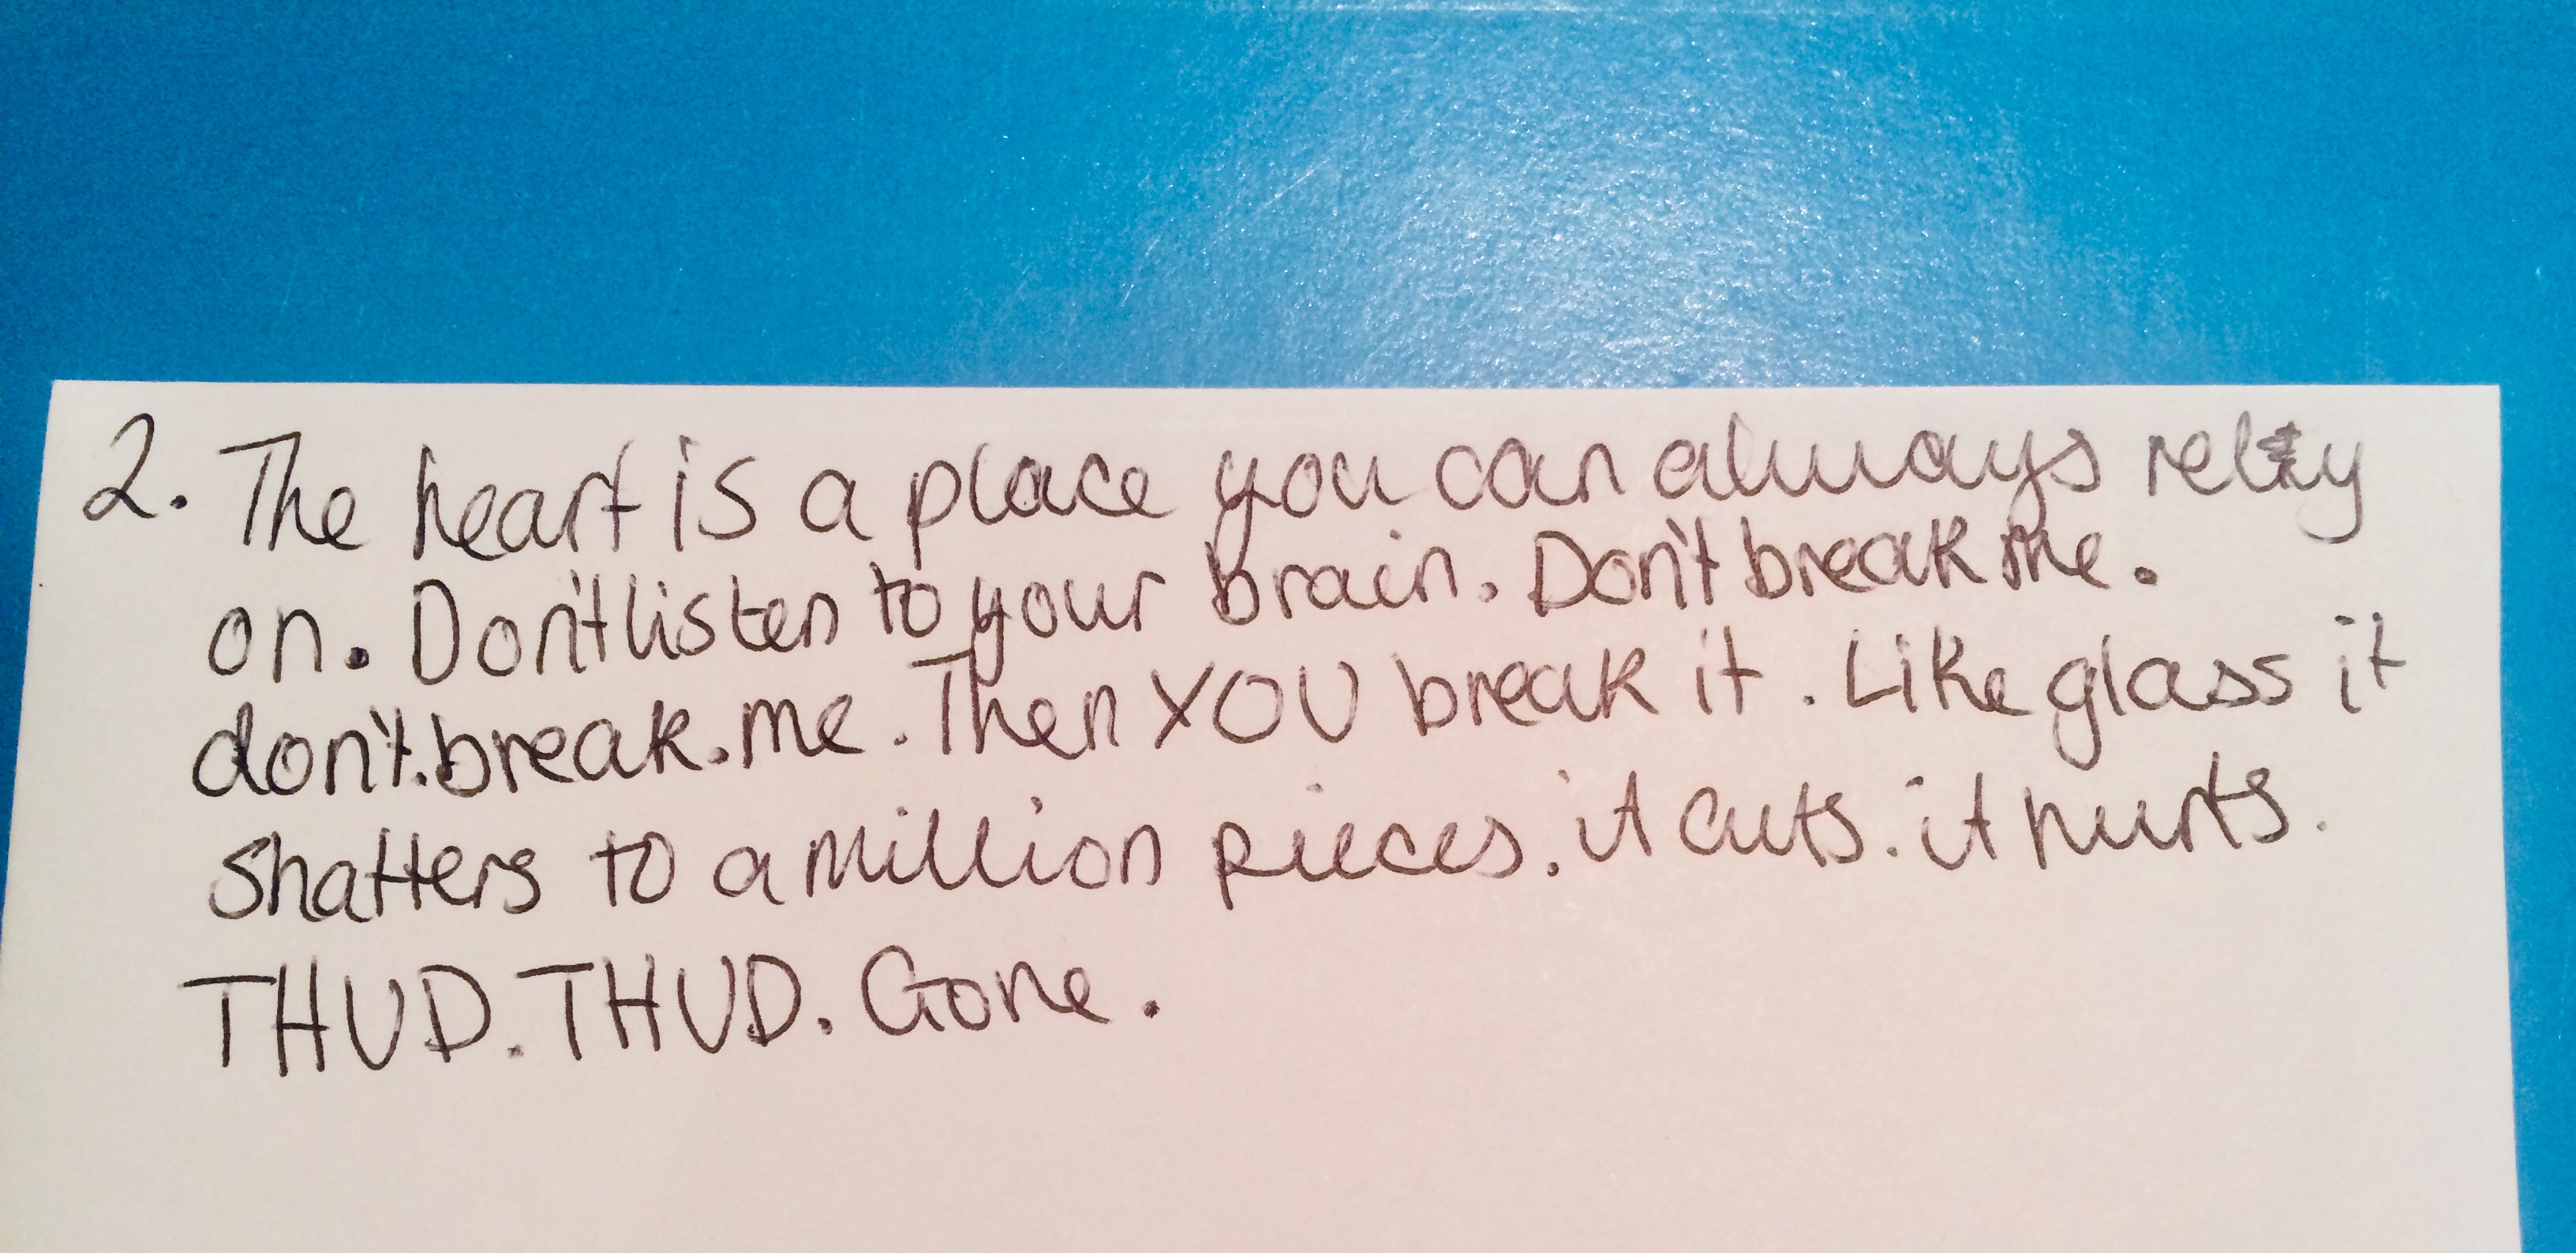 2. The heart is a place you can always rely
on. Don't listen to your brain. Don't break me.
don't.break.me. Then YOU break it. Like glass it
shatters to a million pieces. it cuts. it hurts.
THUD. THUD. Gone.